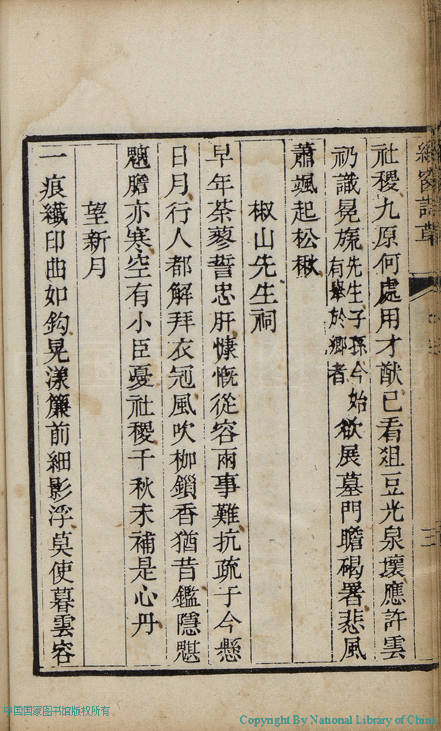 社稷九原何處用才猷已看俎豆光泉壤應許雲
礽識冕旒先生子孫今始有舉於鄉者欲展墓門瞻碣署悲風
蕭颯起松楸
椒山先生祠
早年荼蓼誓忠肝慷慨從容兩事難抗疏于今懸
日月行人都解拜衣冠風吹枷鎖香猶昔鑑隱魑
魅膽亦寒空有小臣憂社稷千秋未補是心丹
望新月
一痕纖印曲如鈎晃漾簾前細影浮莫使暮雲容
三
中国国家图书馆版权所有
Copyright By National Library of China